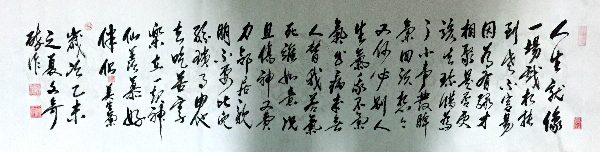 人生就像
一場戲相扶
到老不容易
因為有緣才
相聚是否更
該去珍惜為
了小事發脾
氣回頭想想
又何必別人
生氣我不氣
氣出病來無
人替我若氣
死誰如意況
且傷神又費
力鄰居親
朋不要比兒
孫瑣事由他
去吃苦享
樂在一起神
仙羨慕好
伴侣莫生氣
歲次乙未
之夏文奇
作